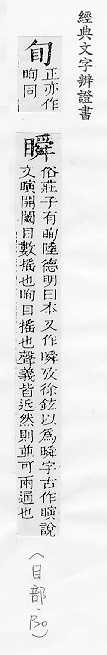 經典文字辨證書
旬
正亦作
眴同
瞬
俗莊子有眴陸德明曰本又作瞬攷徐鉉以爲瞬字古作瞚說
文瞚開闔目數搖也眴目搖也聲義皆近然則並可兩通也
(目部.30)